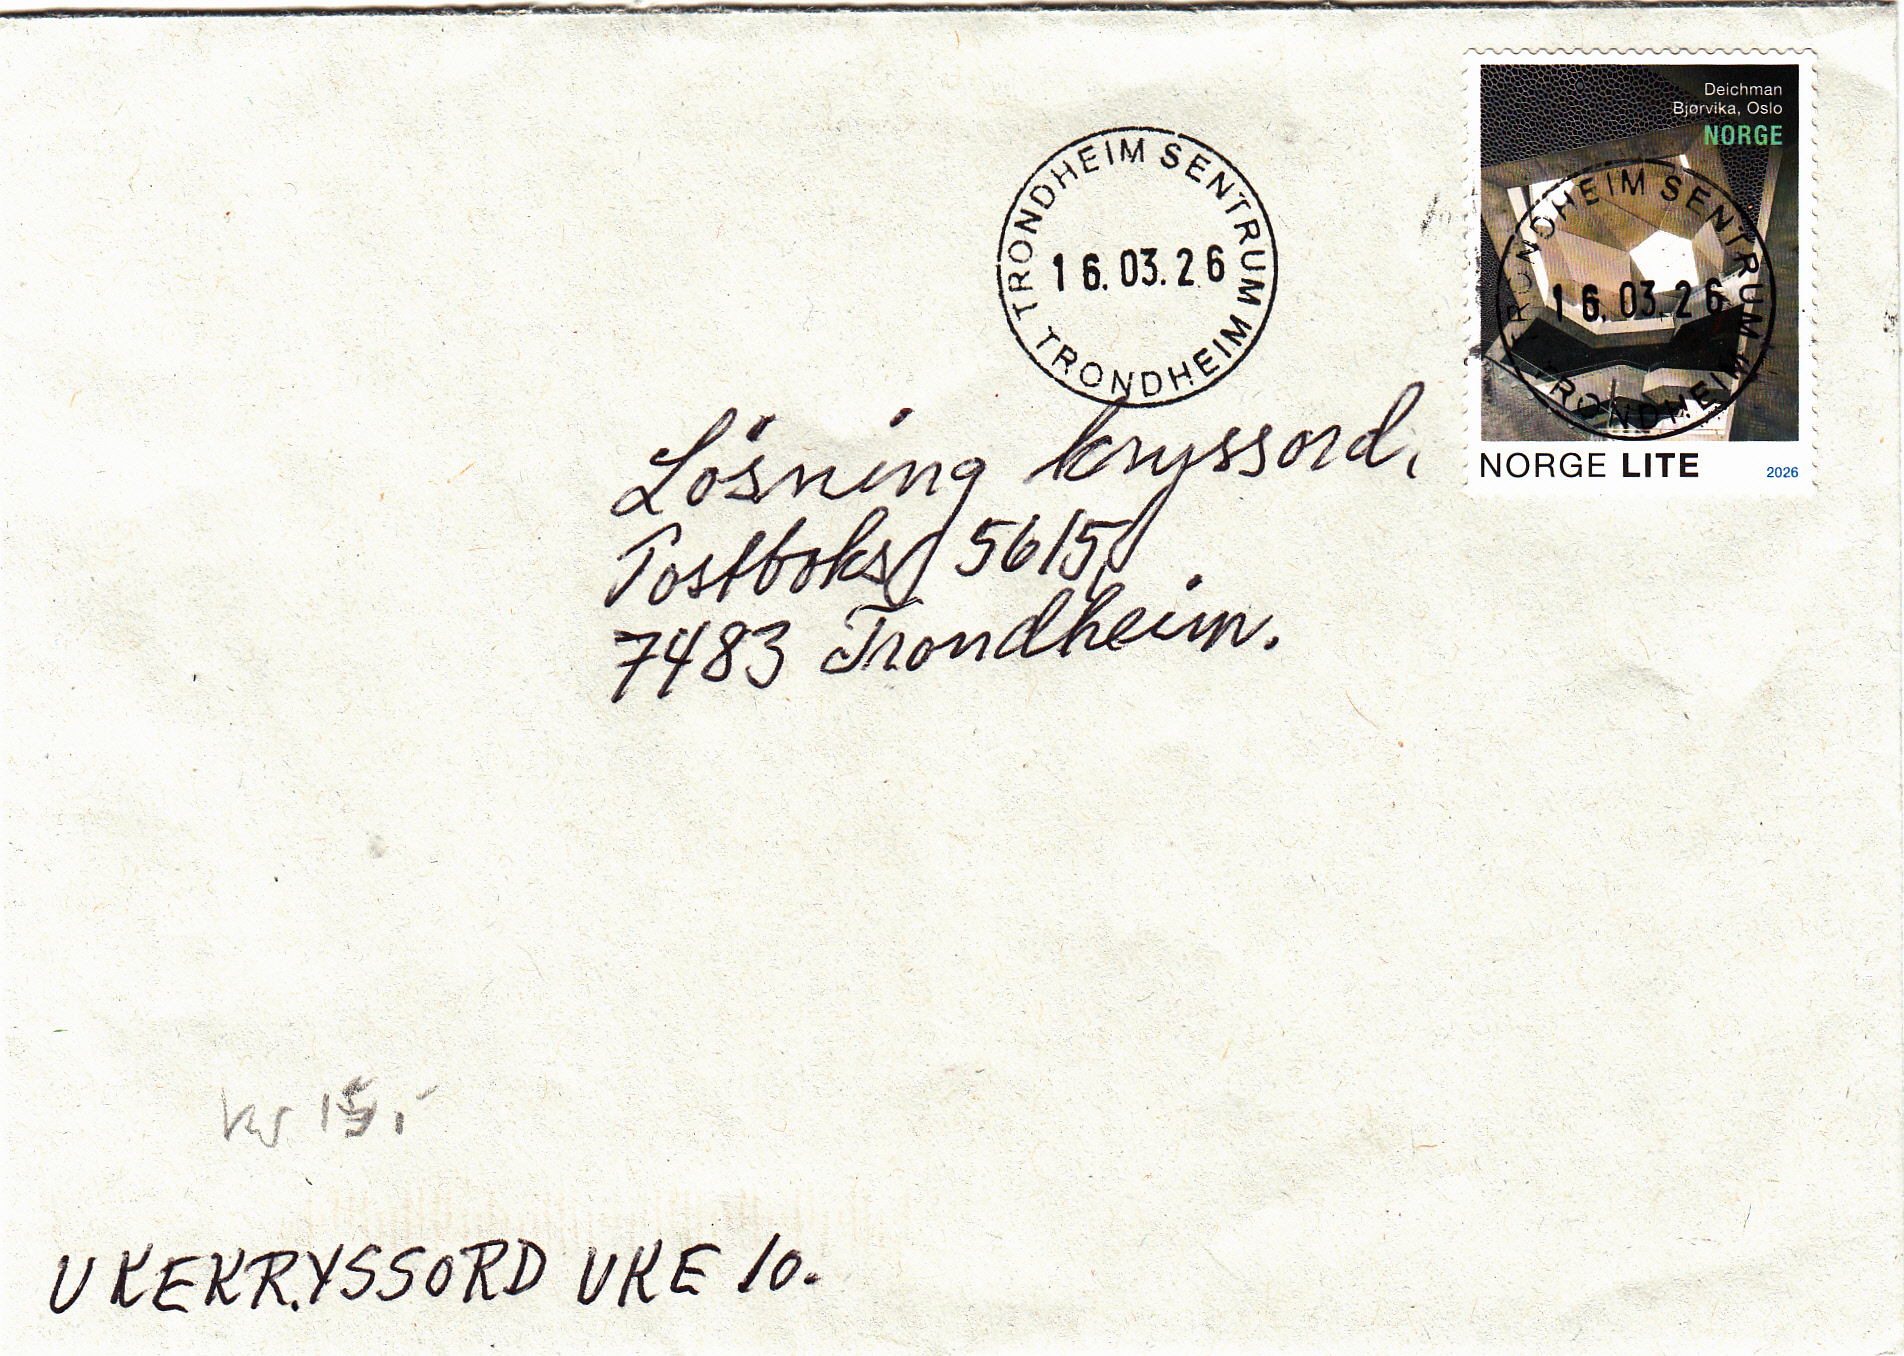 Deichman
Bjørvika, Oslo
NORGE
TRONDHEIM SENTRUM
16.03.26
TRONDHEIM
TRONDHEIM SENTRUM
16.03.26
TRONDHEIM
NORGE LITE 2026
Løsning kryssord,
Postboks 5615
7483 Trondheim.
15,-
UKEKRYSSORD UKE 10.